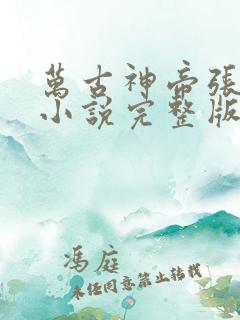 萬古神帝張
小說完整版
馮庭
未經同意禁止轉載